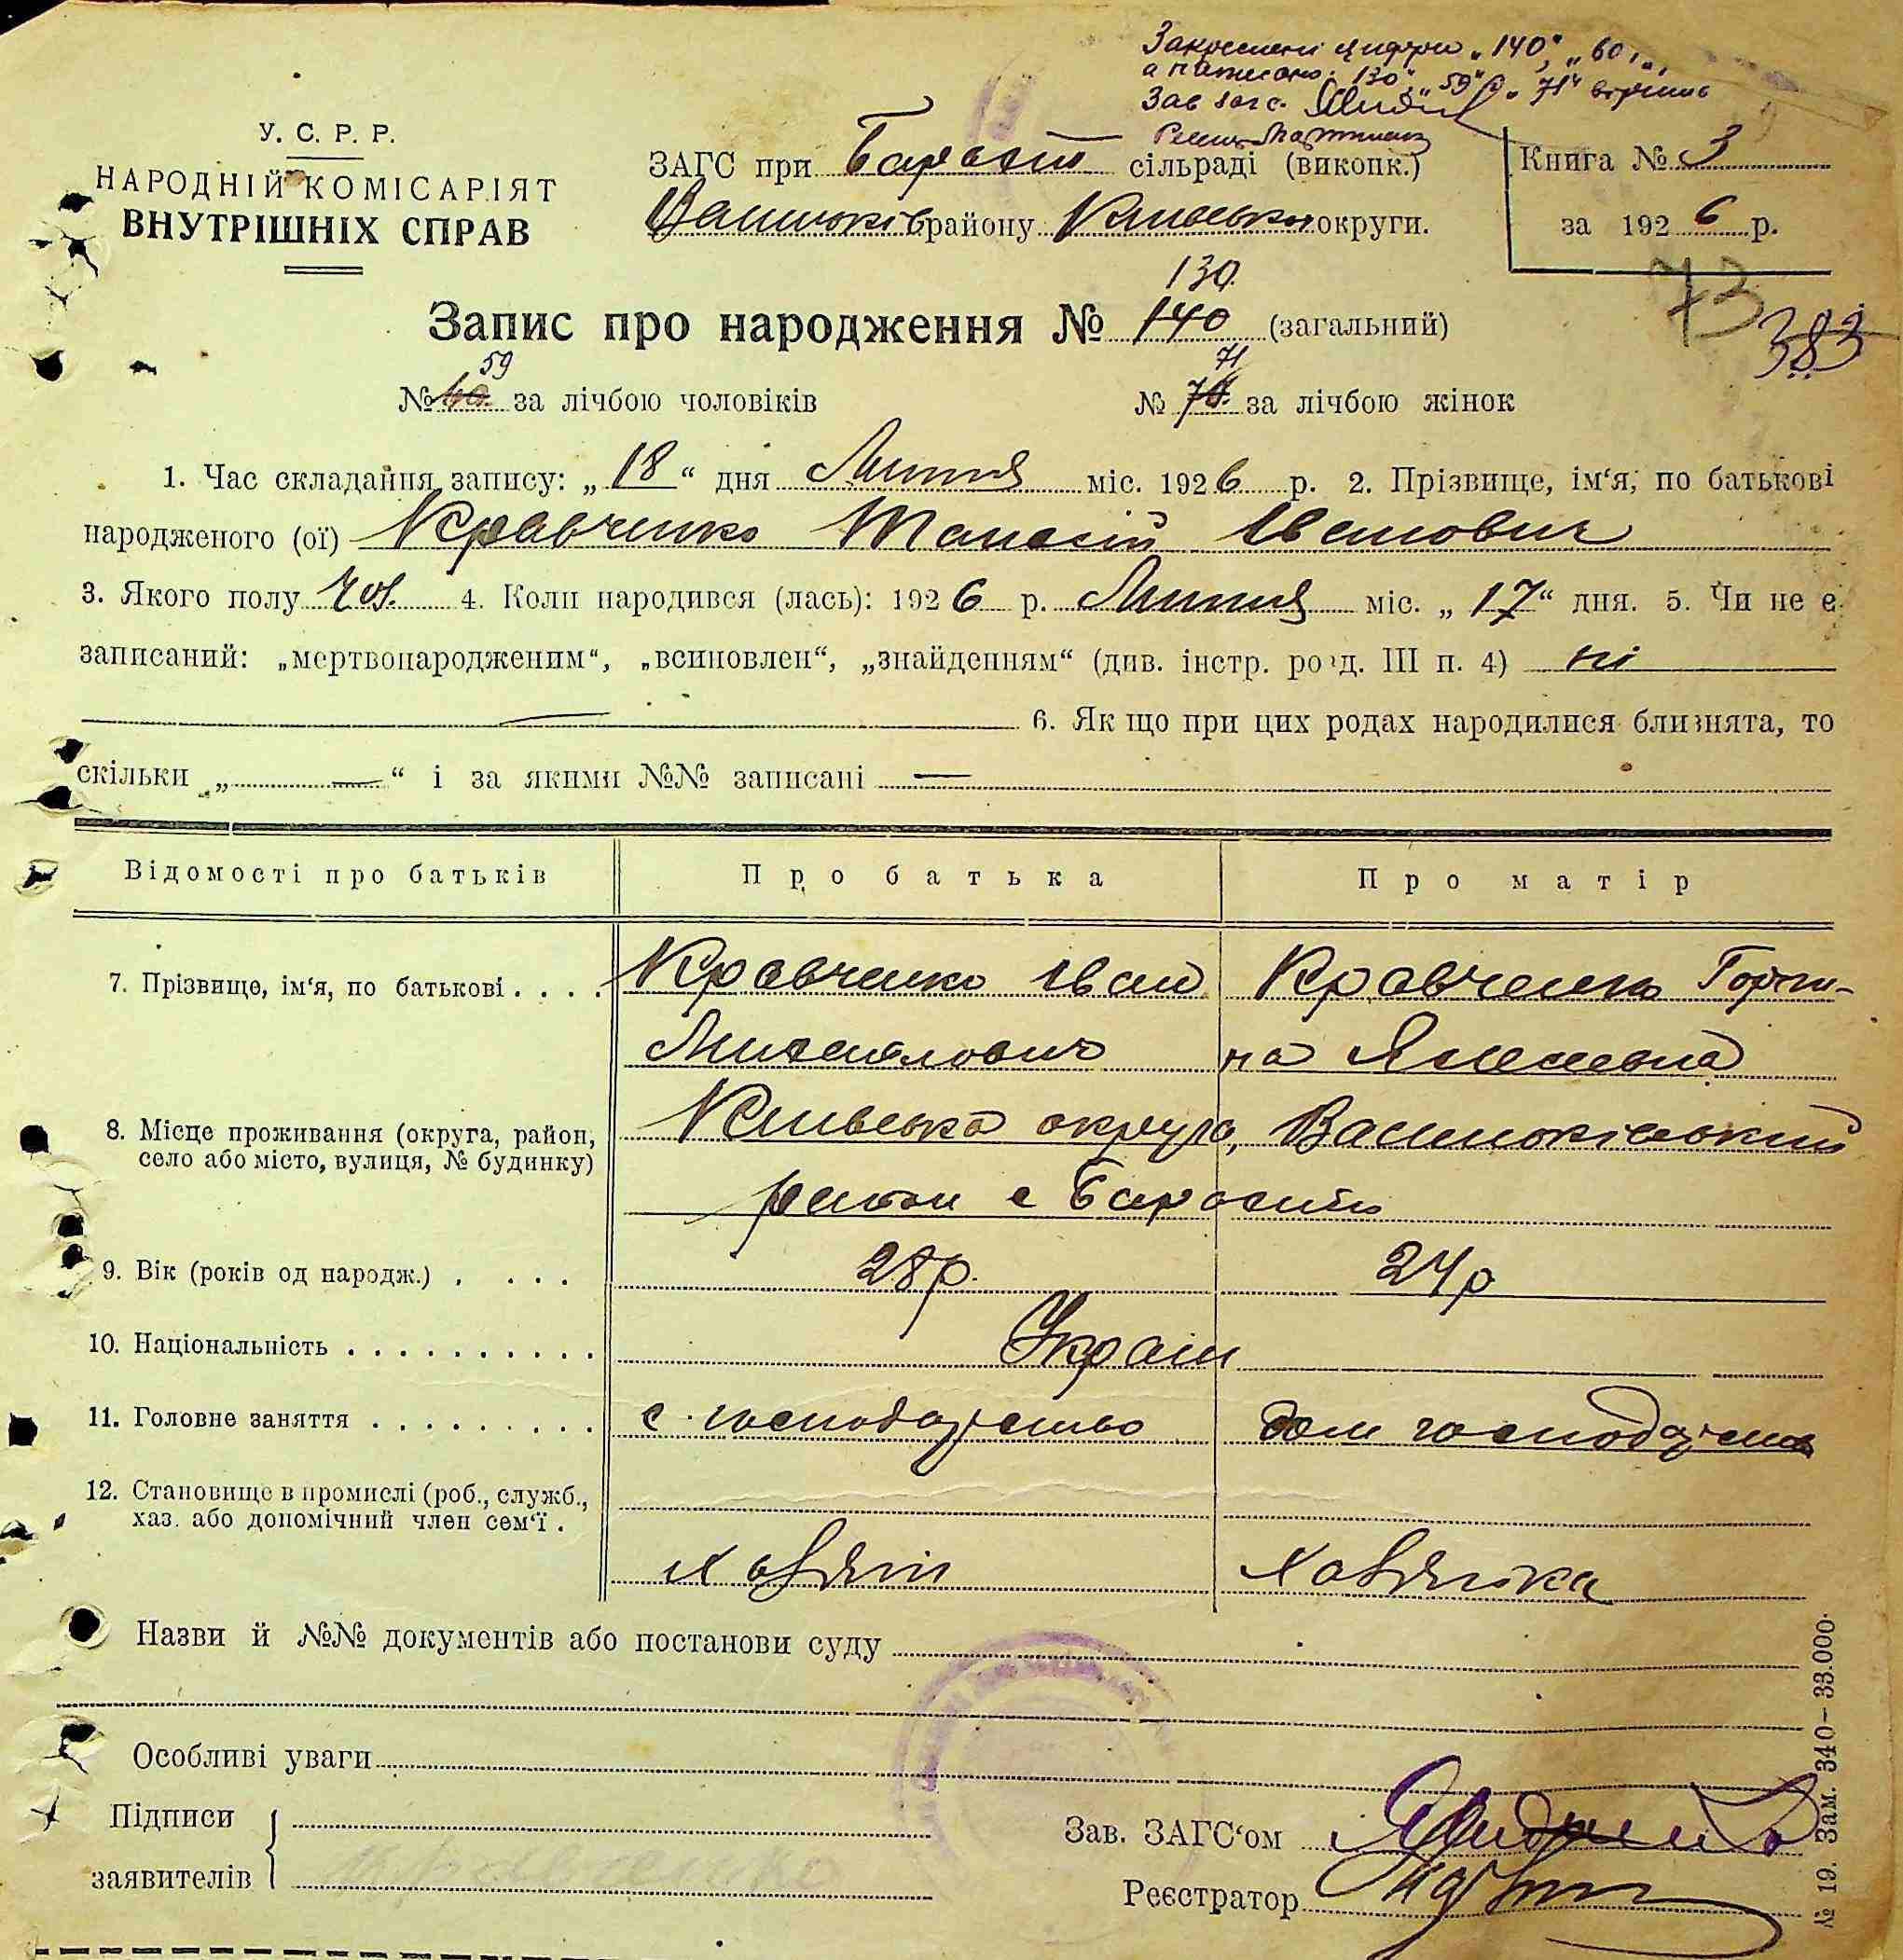 Закреслені цифри „140“, „60“,
а написано: „130“, „59“, „71“ вірно
Зав загс.
У. С. Р. Р.
НАРОДНІЙ КОМІСАРІЯТ
ВНУТРІШНІХ СПРАВ
ЗАГС при сільраді (виконк.)
району округи.
Книга № 3
за 1926 р.
73
383
130
Запис про народження № 140 (загальний)
59 71
№ 60 за лічбою чоловіків № за лічбою жінок
1. Час складання запису: „18“ дня Липня міс. 1926 р. 2. Прізвище, ім‘я, по батькові
народженого (ої) Кравченко Іванович
3. Якого полу чол. 4. Коли народився (лась): 1926 р. Липня міс. „17“ дня. 5. Чи не є
записаний: „мертвонародженим“, „всиновлен“, „знайденням“ (див. інстр. розд. III п. 4) ні
6. Як що при цих родах народилися близнята, то
скільки „ — “ і за якими №№ записані —
Відомості про батьків Про батька Про матір
7. Прізвище, ім‘я, по батькові . . . . Кравченко Іван Кравченко Горпи-
Михайлович на
8. Місце проживання (округа, район, Київська округа, Васильківський
село або місто, вулиця, № будинку)
район с
9. Вік (років од народж.) . . . . 28р. 24р
10. Національність . . . . . . . . . . Україн
11. Головне заняття . . . . . . . . . с. господарство дом господарство
12. Становище в промислі (роб., служб.,
хаз. або допомічний член сем‘ї .
Хазяїн Хазяйка
Назви й №№ документів або постанови суду
Особливі уваги
Підписи
заявителів Кравченко
Зав. ЗАГС‘ом
Реєстратор
№ 19. Зам. 340–33.000.